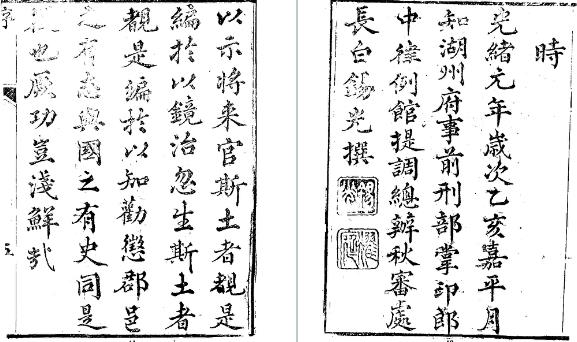 以示將来官斯土者覩是
編於以鏡治忽生斯土者
覩是編於以知勸懲郡邑
之有志與國之有史同是
也厥功豈淺鮮哉
序
五
時
光緒元年歲次乙亥嘉平月
知湖州府事前刑部掌印郎
中律例館提調總辦秋審處
長白錫光撰